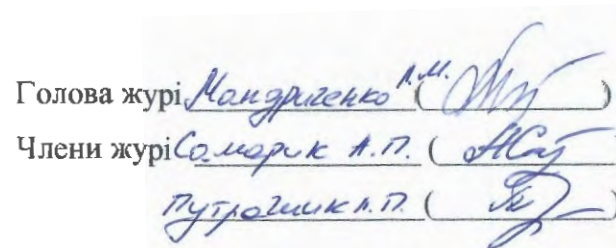 Голова журі Мандриченко Л.М. ( )
Члени журі Самарик А.П. ( )
Путрашик Л.П. ( )